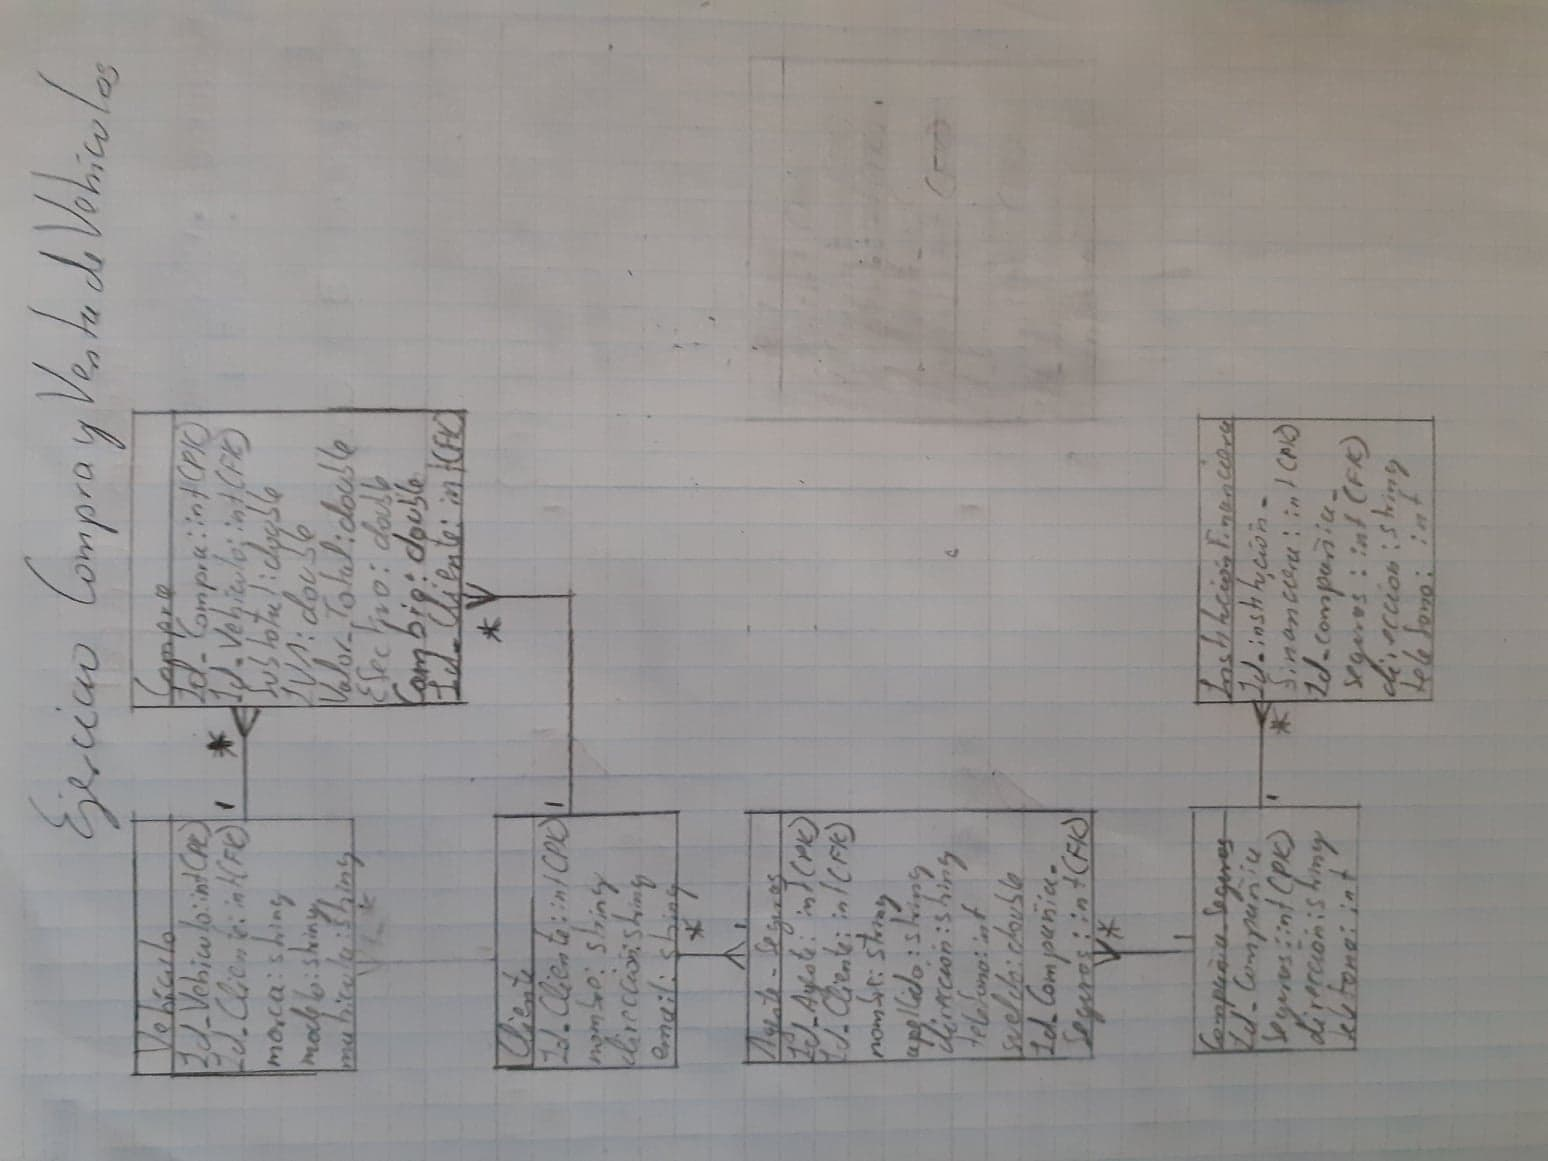 Ejercicio Compra y Venta de Vehiculos
Vehiculo
Id_Vehiculo:int(PK)
Id_Cliente:int(FK)
marca:string
modelo:string
matricula:string
1
*
Compra
Id_Compra:int(PK)
Id_Vehiculo:int(FK)
Subtotal:double
IVA:double
Valor_Total:double
Efectivo:double
Cambio:double
Id_Cliente:int(FK)
*
1
Cliente
Id_Cliente:int(PK)
nombre:string
direccion:string
email:string
*
1
Agente-Seguros
Id_Agente:int(PK)
Id_Cliente:int(FK)
nombre:string
apellido:string
direccion:string
telefono:int
sueldo:double
Id_Compañia_
Seguros:int(FK)
*
1
Compañia_Seguros
Id_Compañia
Seguros:int(PK)
direccion:string
telefono:int
1
*
InstitucionFinanciera
Id_institución_
financiera:int(PK)
Id_compañia_
seguros:int(FK)
direccion:string
telefono:int
(FK)